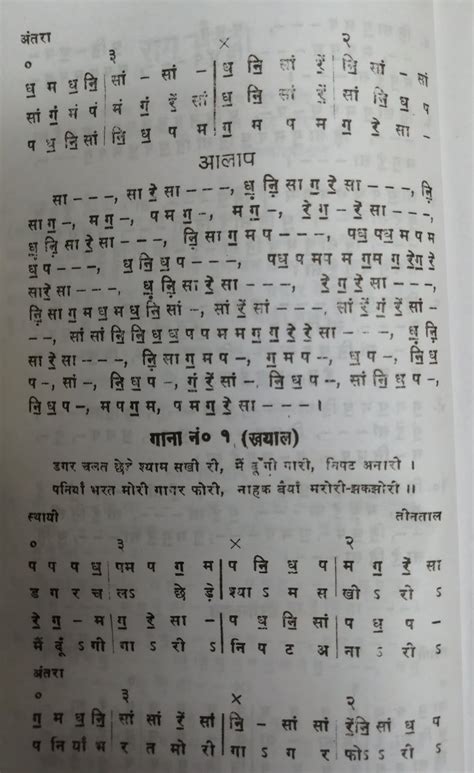 अंतरा
० ३ × २
ध॒ म ध॒ नि॒ | सां - सां - | ध॒ नि॒ सां रें॒ | नि॒ सां - सां
सां गं॒ मं पं | मं गं॒ रें॒ सां | ध॒ नि॒ सां रें॒ | सां नि॒ ध॒ प
प ध॒ नि॒ सां | नि॒ ध॒ प म | ग॒ म प म | ग॒ रे॒ सा -
आलाप
सा - - -, सा रे॒ सा - - -, ध़॒ नि़॒ सा ग॒ रे॒ सा - - -, नि़॒
सा ग॒ -, म ग॒ -, प म ग॒ -, म ग॒ -, रे॒ ग॒ - रे॒ सा - - -,
ध़॒ नि़॒ सा रे॒ सा - - -, नि़॒ सा ग॒ म प - - -, पध॒ पध॒ म प म
ध॒ प - - -, ध॒ नि॒ ध॒ प - - -, पध॒ पम प म ग॒म ग॒ रे॒ग॒ रे॒
सारे॒ सा - - -, ध़॒ नि़॒ सा रे॒ सा - - -, रे॒ ग॒ रे॒ सा - - -,
नि़॒ सा ग॒ म ध॒ म ध॒ नि॒ सां -, सां रें॒ सां - - -, सां रें॒ गं॒ रें॒ सां
- -, सां सां नि॒ नि॒ ध॒ ध॒ प प म म ग॒ ग॒ रे॒ रे॒ सा - - -, ध़॒ नि़॒
सा रे॒ सा - - -, नि़॒ सा ग॒ म प -, ग॒ म प - -, ध॒ प -, नि॒ ध॒
प -, सां -, नि॒ ध॒ प -, गं॒ रें॒ सां -, नि॒ सां नि॒ ध॒ प -, सां नि॒ ध॒ प -,
नि॒ ध॒ प -, म प ग॒ म, प म ग॒ रे॒ सा - - - ।
गाना नं० १ (ख़याल)
डगर चलत छेड़े श्याम सखी री, मैं दूँगी गारी, निपट अनारी ।
पनियाँ भरत मोरी गागर फोरी, नाहक बैंयाँ मरोरी-झकझोरी ।।
स्थायी तीनताल
० ३ × २
प प प ध॒ | पम प ग॒ म | प नि॒ ध॒ प | म ग॒ रें॒ सा
ड ग र च | लऽ ऽ छे ड़े | श्या ऽ म स | खी ऽ री ऽ
रे॒ ग॒ - म | ग॒ रे॒ सा - | प ध॒ नि॒ सां | प ध॒ प -
मैं दूं ऽ गी | गा ऽ री ऽ | नि प ट अ | ना ऽ री ऽ
अंतरा
० ३ × २
ग॒ म ध॒ नि॒ | सां सां रें॒ सां | नि॒ - सां सां | रें॒नि॒ सां ध॒ प
प नि याँ भ | र त मो री | गा ऽ ग र | फोऽ ऽ री ऽ